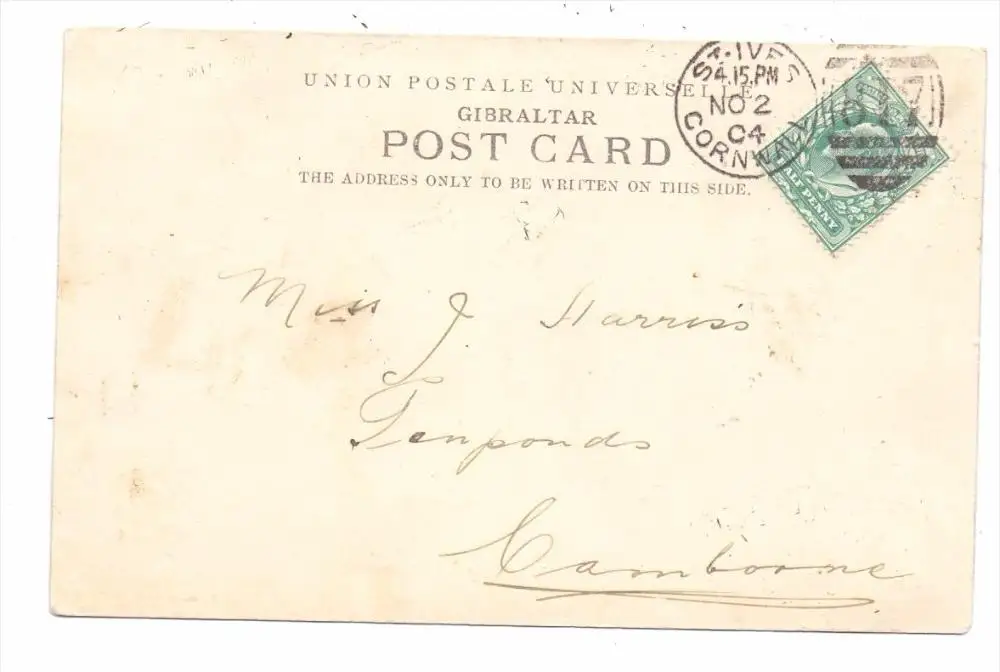 UNION POSTALE UNIVERSELLE
GIBRALTAR
POST CARD
THE ADDRESS ONLY TO BE WRITTEN ON THIS SIDE.
ST. IVES
4.15.PM
NO 2
04
CORNWALL
HALF PENNY
Miss J Harriss
Tenponds
Camborne